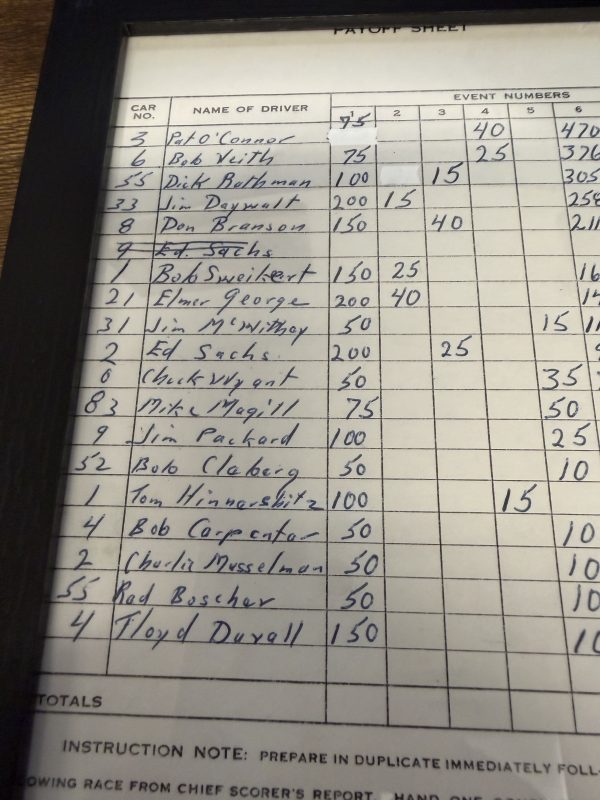 PAYOFF SHEET
EVENT NUMBERS
CAR NO. NAME OF DRIVER 1 2 3 4 5 6
3 Pat O'Connor 75 40 470
6 Bob Veith 75 25 376
55 Dick Rathman 100 15 305
33 Jim Daywalt 200 15 258
8 Don Branson 150 40 211
9 Ed. Sachs
1 Bob Sweikert 150 25 16
21 Elmer George 200 40 14
31 Jim McWithey 50 15 11
2 Ed Sachs. 200 25
6 Chuck 50 35
83 Mike Magill 75 50
9 Jim Packard 100 25
52 Bob Claberg 50 10
1 Tom Hinnarshitz 100 15
4 Bob Carpentar 50 10
2 Charlie Musselman 50 10
55 Rad Boschar 50 10
4 Floyd Duvall 150 10
TOTALS
INSTRUCTION NOTE: PREPARE IN DUPLICATE IMMEDIATELY FOLL-
OWING RACE FROM CHIEF SCORER'S REPORT. HAND ONE